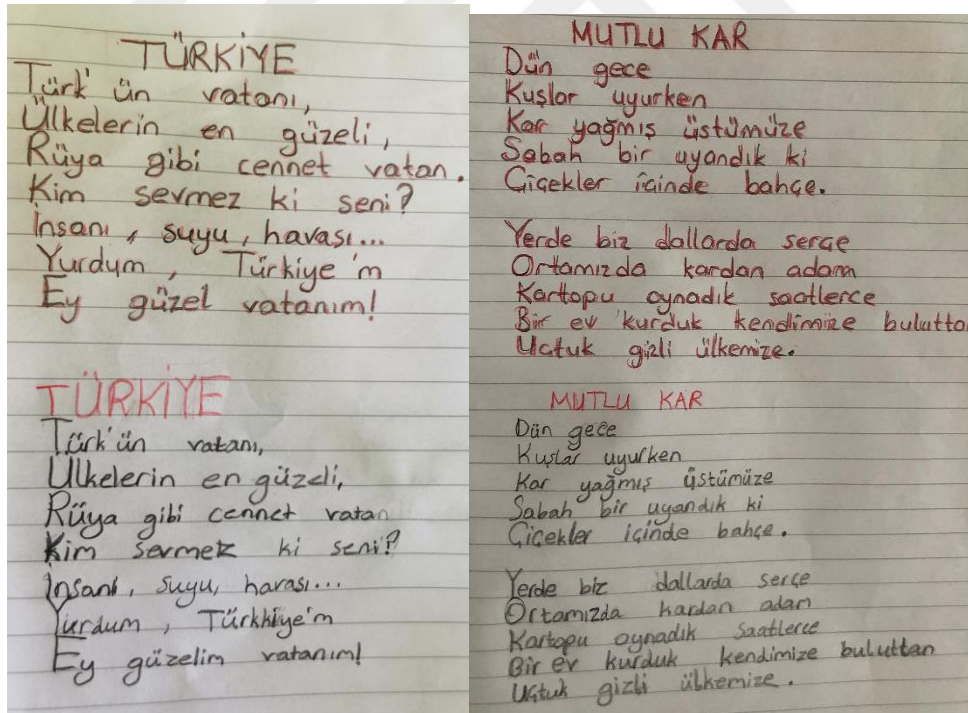 TÜRKİYE
Türk'ün vatanı,
Ülkelerin en güzeli,
Rüya gibi cennet vatan.
Kim sevmez ki seni?
İnsanı, suyu, havası...
Yurdum, Türkiye'm
Ey güzel vatanım!
TÜRKİYE
Türk'ün vatanı,
Ülkelerin en güzeli,
Rüya gibi cennet vatan
Kim sevmez ki seni?
İnsanı, suyu, havası...
Yurdum, Türkkiye'm
Ey güzelim vatanım!
MUTLU KAR
Dün gece
Kuşlar uyurken
Kar yağmış üstümüze
Sabah bir uyandık ki
Çiçekler içinde bahçe.
Yerde biz dallarda serçe
Ortamızda kardan adam
Kartopu oynadık saatlerce
Bir ev kurduk kendimize bulutta
Uçtuk gizli ülkemize.
MUTLU KAR
Dün gece
Kuşlar uyurken
Kar yağmış üstümüze
Sabah bir uyandık ki
Çiçekler içinde bahçe.
Yerde biz dallarda serçe
Ortamızda kardan adam
Kartopu oynadık saatlerce
Bir ev kurduk kendimize buluttan
Uçtuk gizli ülkemize.